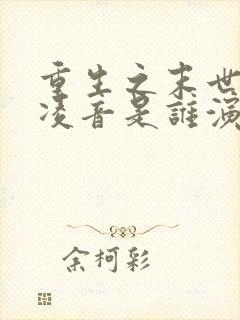 重生之末世
凌音是誰演
余柯彩